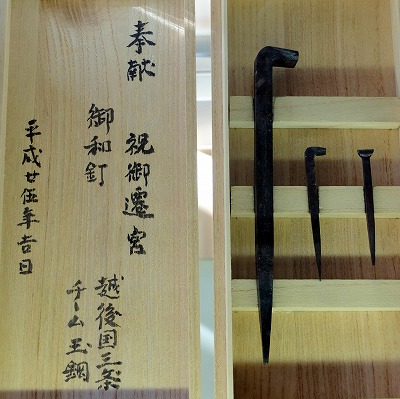 奉献
祝御遷宮
御和釘
越後国三条
チーム玉鋼
平成廿伍年吉日